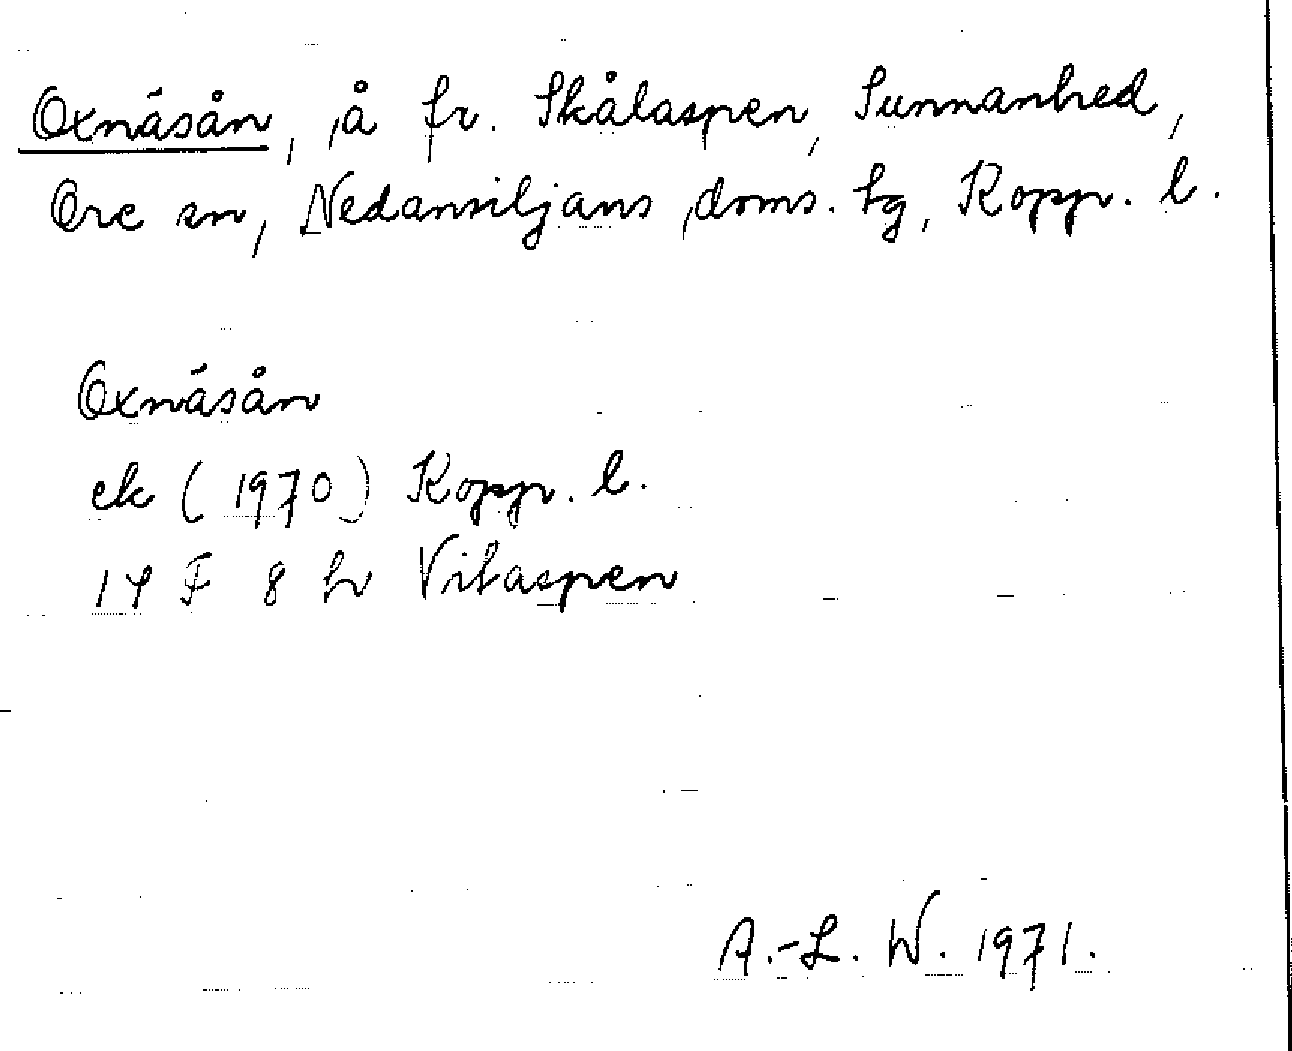 Oxnäsån, å fr. Skålaspen, Sunnanhed,
Ore sn, Nedansiljans doms. tg, Kopp. l.
Oxnäsån
ek (1970) Kopp. l.
14 F 8 h Vitaspen
A.-L. W. 1971.